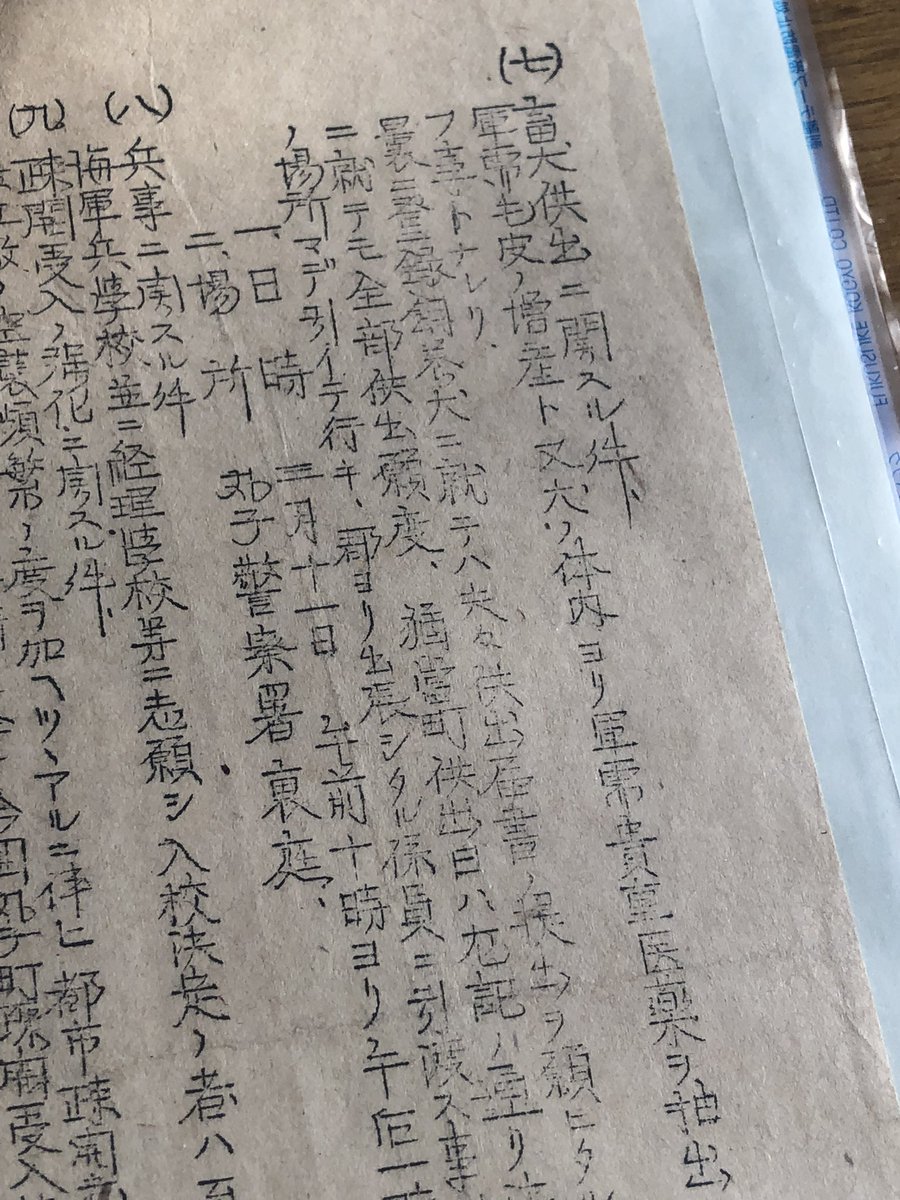 (七) 畜犬供出ニ関スル件、
軍需毛皮ノ増産ト又犬ノ体内ヨリ軍需貴重医薬ヲ抽出
フ事トナレリ、
曩ニ登録飼養犬ニ就テハ夫々供出届書ノ提出ヲ願ニタル
ニ就テモ全部供出願度、猶当町供出日ハ左記ノ通リ
ノ場所マデ引イテ行キ、郡ヨリ出張シタル係員ニ引渡ス事
一、日時 三月十一日 午前十時ヨリ午后一時
二、場所 丸子警察署裏庭、
(八) 兵事ニ関スル件
海軍兵学校並ニ経理学校等ニ志願シ入校決定ノ者ハ至
(九) 疎開受入ノ強化ニ関スル件、
空襲頻繁ノ度ヲ加ヘツヽアルニ伴ヒ都市疎開
今回丸子町疎開受入
FUKUSUKE KOGYO CO LTD